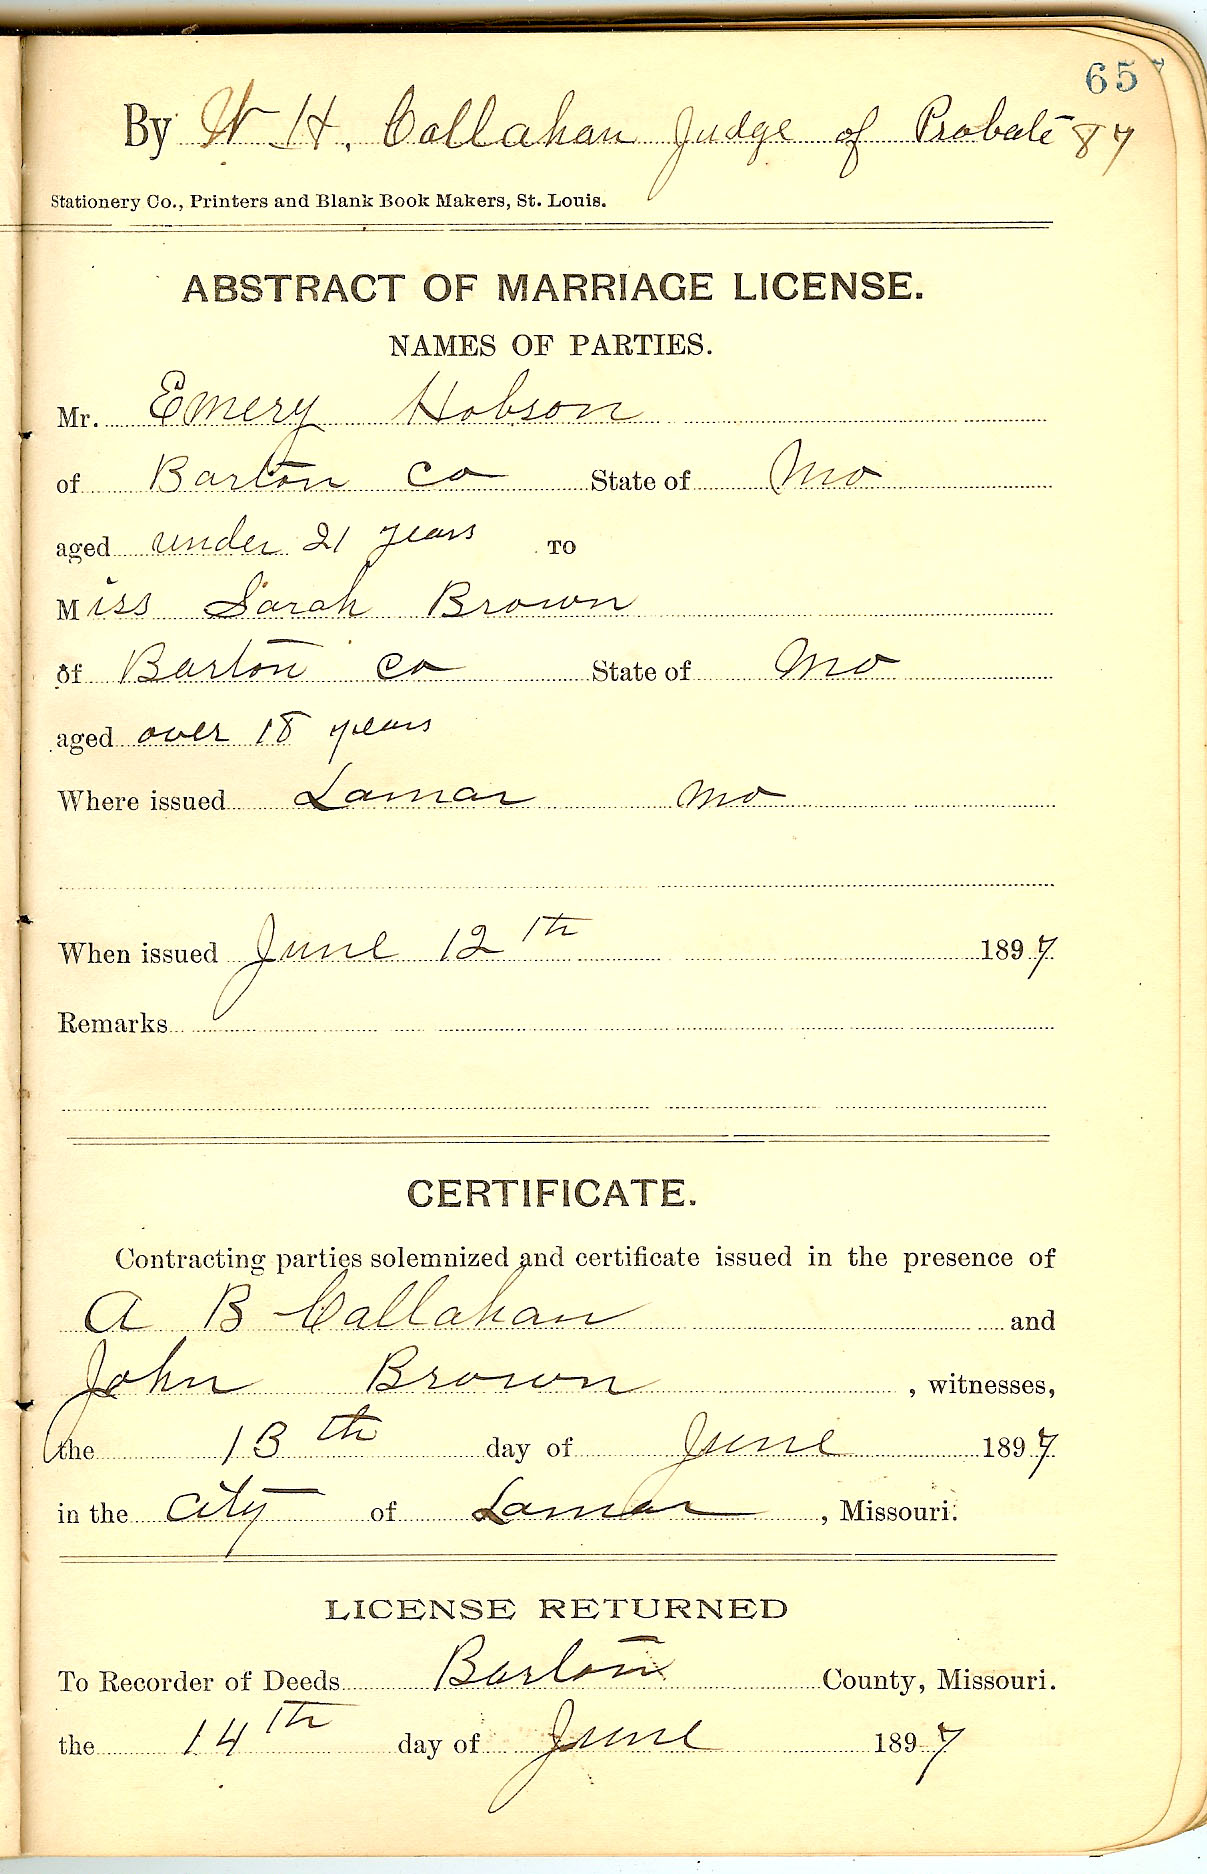 65
By W H. Callahan Judge of Probate 87
Stationery Co., Printers and Blank Book Makers, St. Louis.
ABSTRACT OF MARRIAGE LICENSE.
NAMES OF PARTIES.
Mr. Emery Hobson
of Barton Co State of Mo
aged under 21 years TO
Miss Sarah Brown
of Barton Co State of Mo
aged over 18 years
Where issued Lamar Mo
When issued June 12th 1897
Remarks
CERTIFICATE.
Contracting parties solemnized and certificate issued in the presence of
A B Callahan and
John Brown, witnesses,
the 13th day of June 1897
in the City of Lamar, Missouri.
LICENSE RETURNED
To Recorder of Deeds Barton County, Missouri.
the 14th day of June 1897